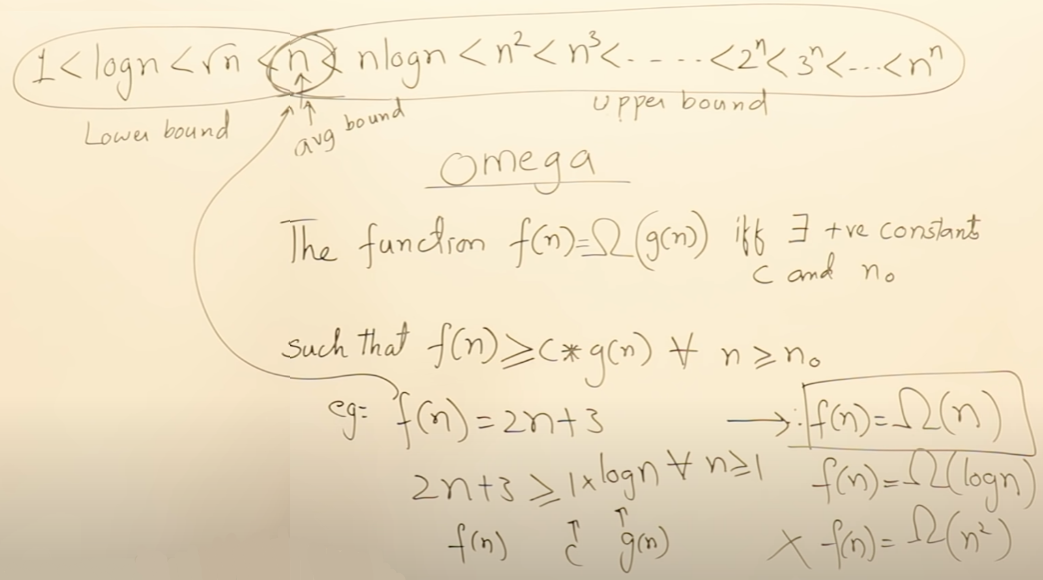 1 < logn < √n < n < nlogn < n² < n³ < - - - - - < 2ⁿ < 3ⁿ < ... < nⁿ
Lower bound
avg bound
Upper bound
Omega
The function f(n)=Ω(g(n)) iff ∃ +ve constants
c and n₀
such that f(n) ≥ c * g(n) ∀ n ≥ n₀
eg= f(n) = 2n+3
2n+3 ≥ 1 × logn ∀ n ≥ 1
f(n) ↑ c ↑ g(n)
→ ∴ f(n) = Ω(n)
f(n) = Ω(logn)
× f(n) = Ω(n²)